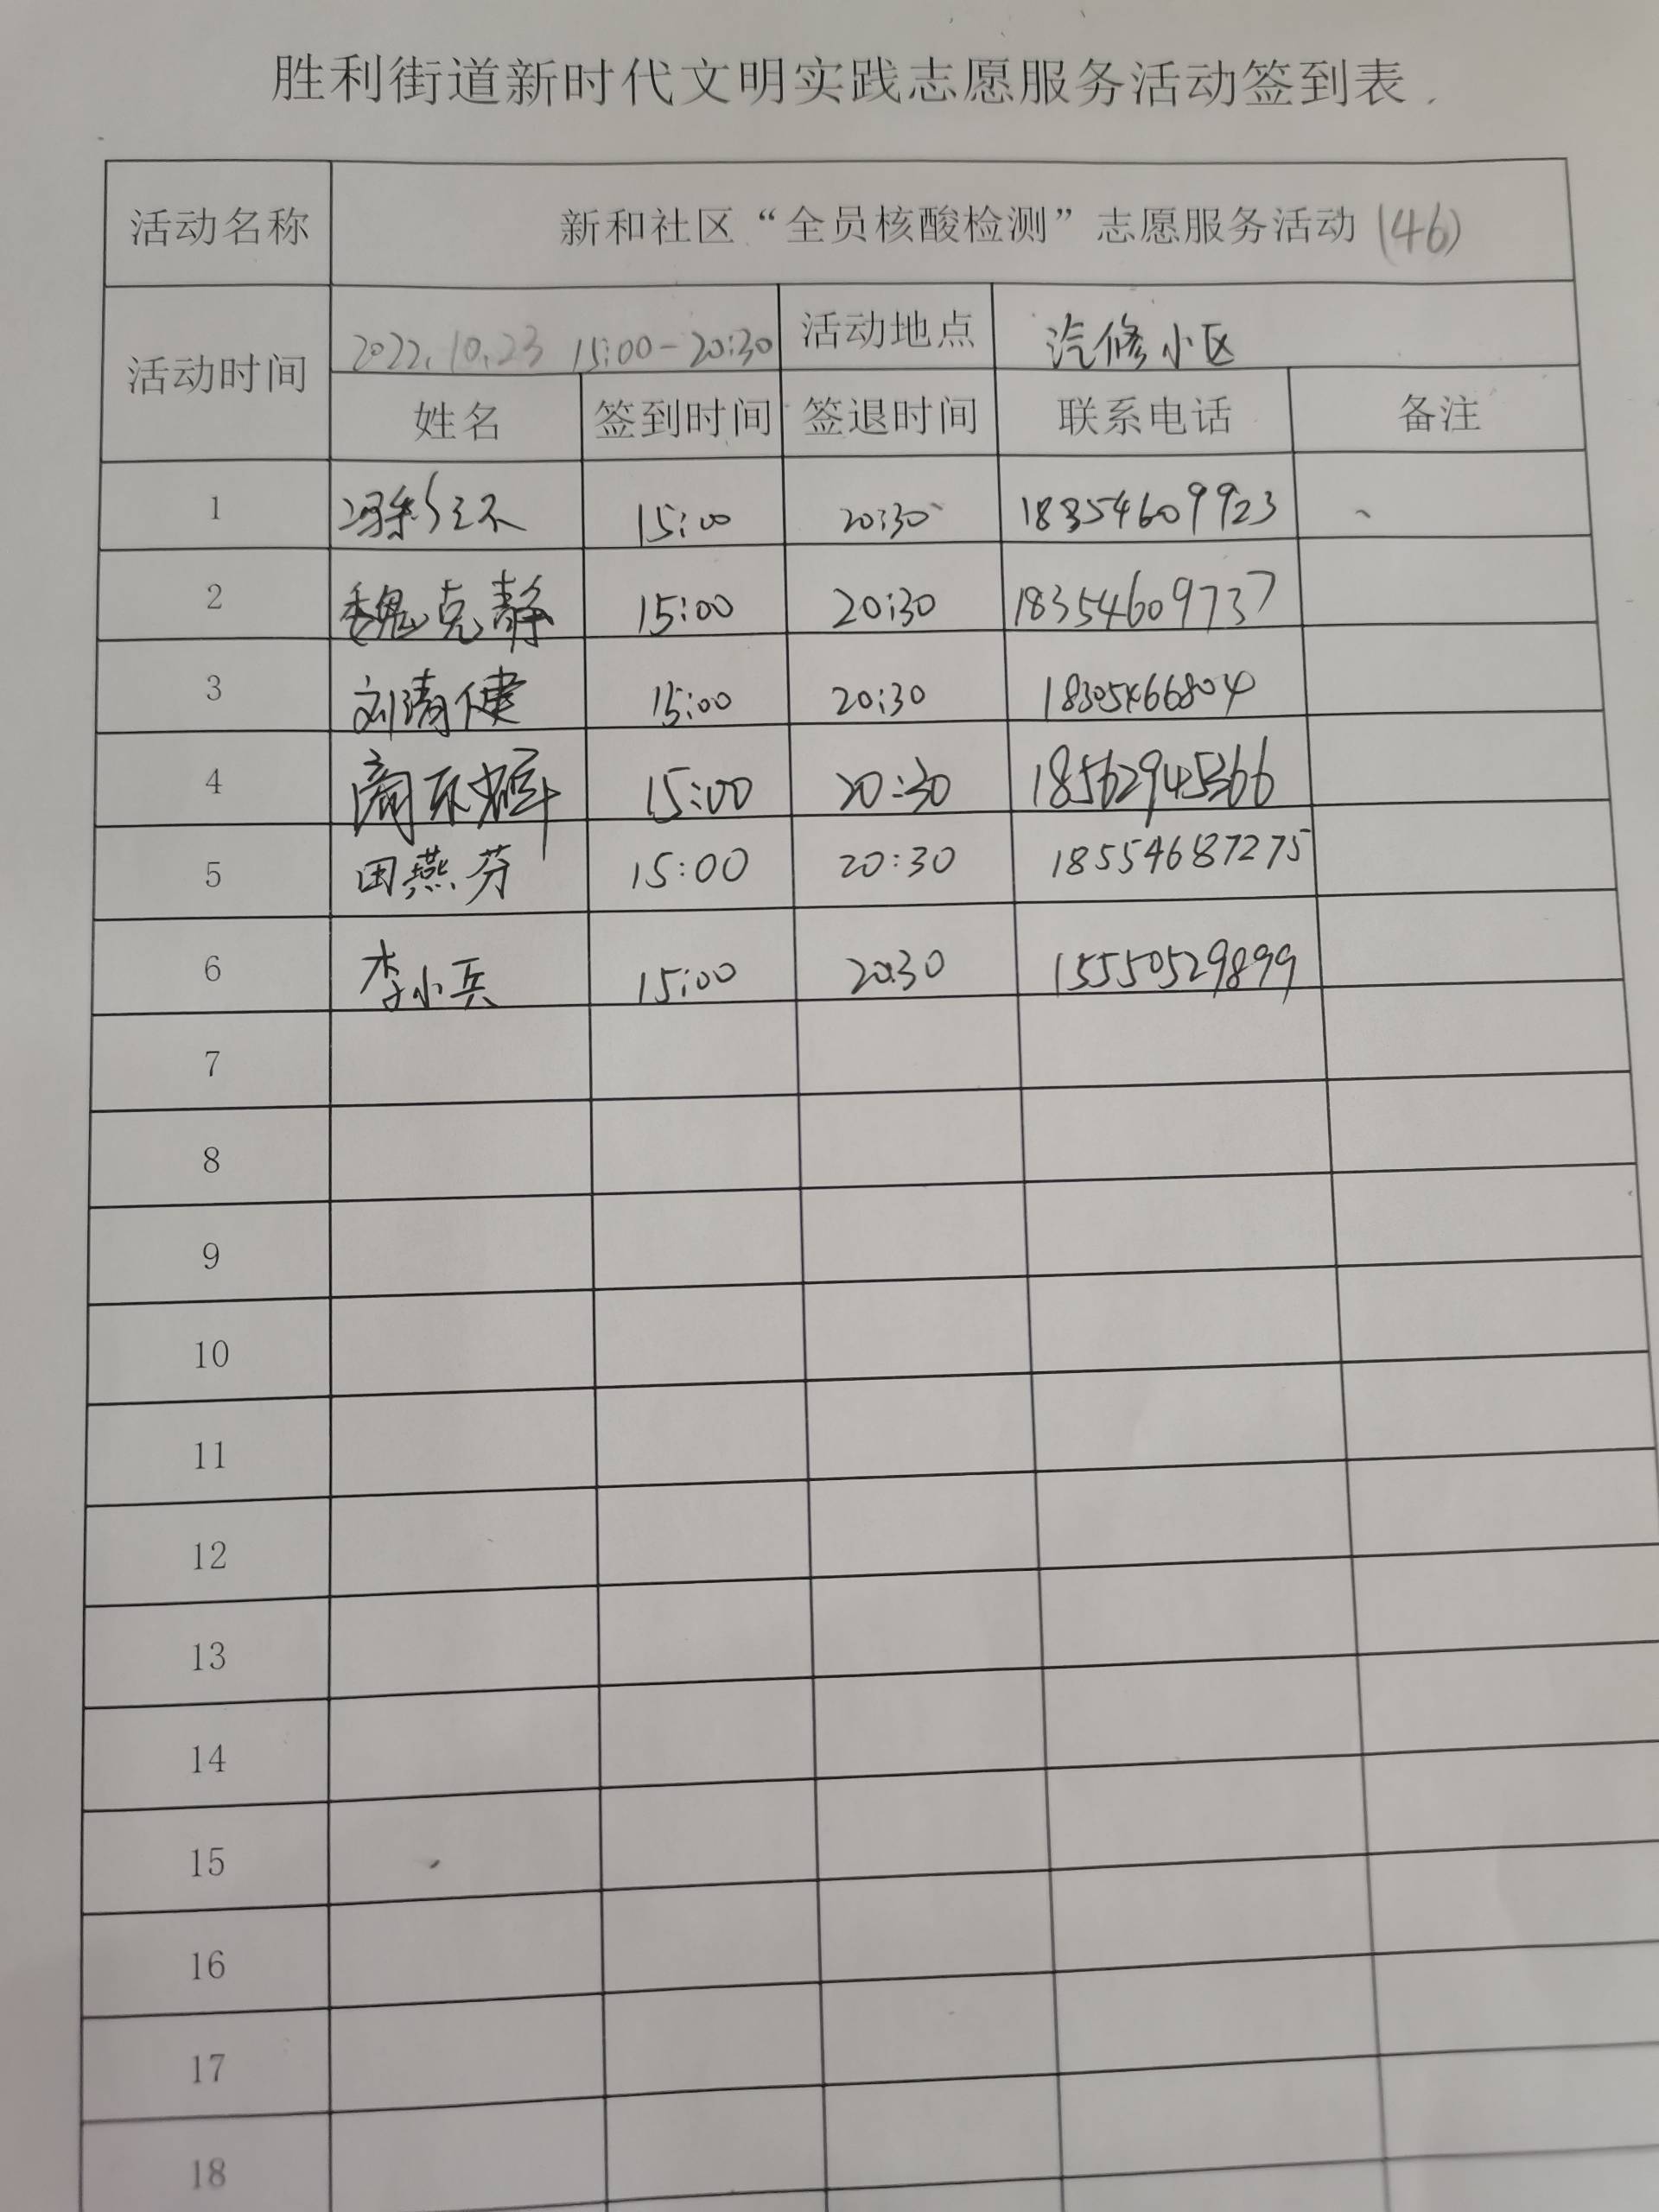 胜利街道新时代文明实践志愿服务活动签到表
活动名称 新和社区“全员核酸检测”志愿服务活动 (46)
活动时间 2022.10.23 15:00-20:30 活动地点 汽修小区
姓名 签到时间 签退时间 联系电话 备注
1 15:00 20:30 18354609923
2 魏克静 15:00 20:30 18354609737
3 刘清健 15:00 20:30 18305466804
4 15:00 20:30
5 田燕芬 15:00 20:30 18554687275
6 李小兵 15:00 20:30 15550529899
7
8
9
10
11
12
13
14
15
16
17
18